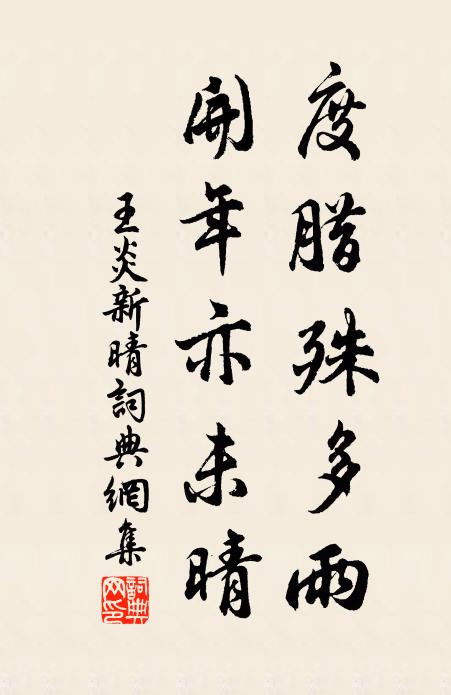 度腊殊多雨
開年亦未晴
王炎新晴詞典網集
詞典网印